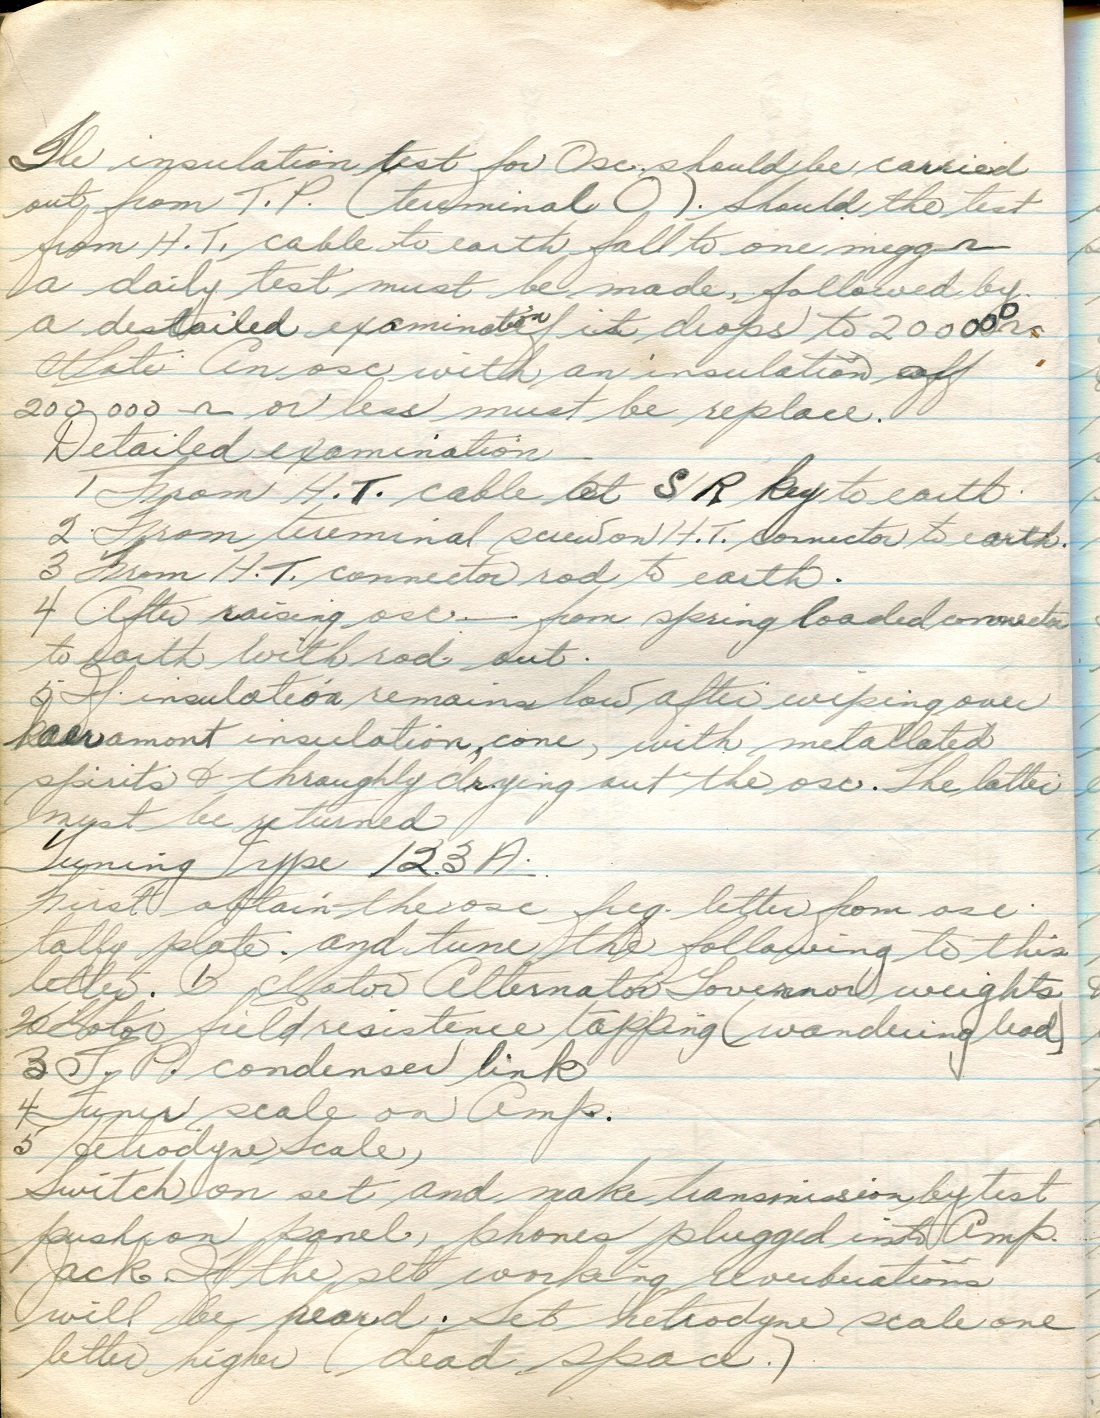 The insulation test for Osc. should be carried
out from T.P. (terminal O). Should the test
from H.T. cable to earth fall to one megg Ω
a daily test must be made, followed by
a destailed examination if it drops to 200000 Ω.
Note An osc with an insulation off
200,000 Ω or less must be replace.
Detailed examination
1 From H.T. cable at S/R key to earth.
2 From tereminal screw on H.T. connector to earth.
3 From H.T. connector rod to earth.
4 After raising osc. — from spring loaded connector
to earth with rod out.
5 If insulation remains low after wiping over
insulation, cone, with metallated
spirits & throughly drying out the osc. The latter
must be returned
Tuning Type 123 A.
First obtain the osc freq. letter from osc.
tally plate. and tune the following to this
letter. 1 Motor Alternator Governor weights
2 Motor field resistence tapping (wandering lead)
3 T. P. condenser link
4 Tuner scale on Amp.
5 hetrodyne Scale,
Switch on set and make transmission by test
push on panel, phones plugged into Amp.
Jack. If the set working reverberations
will be heard. Set hetrodyne scale one
letter higher (dead space.)